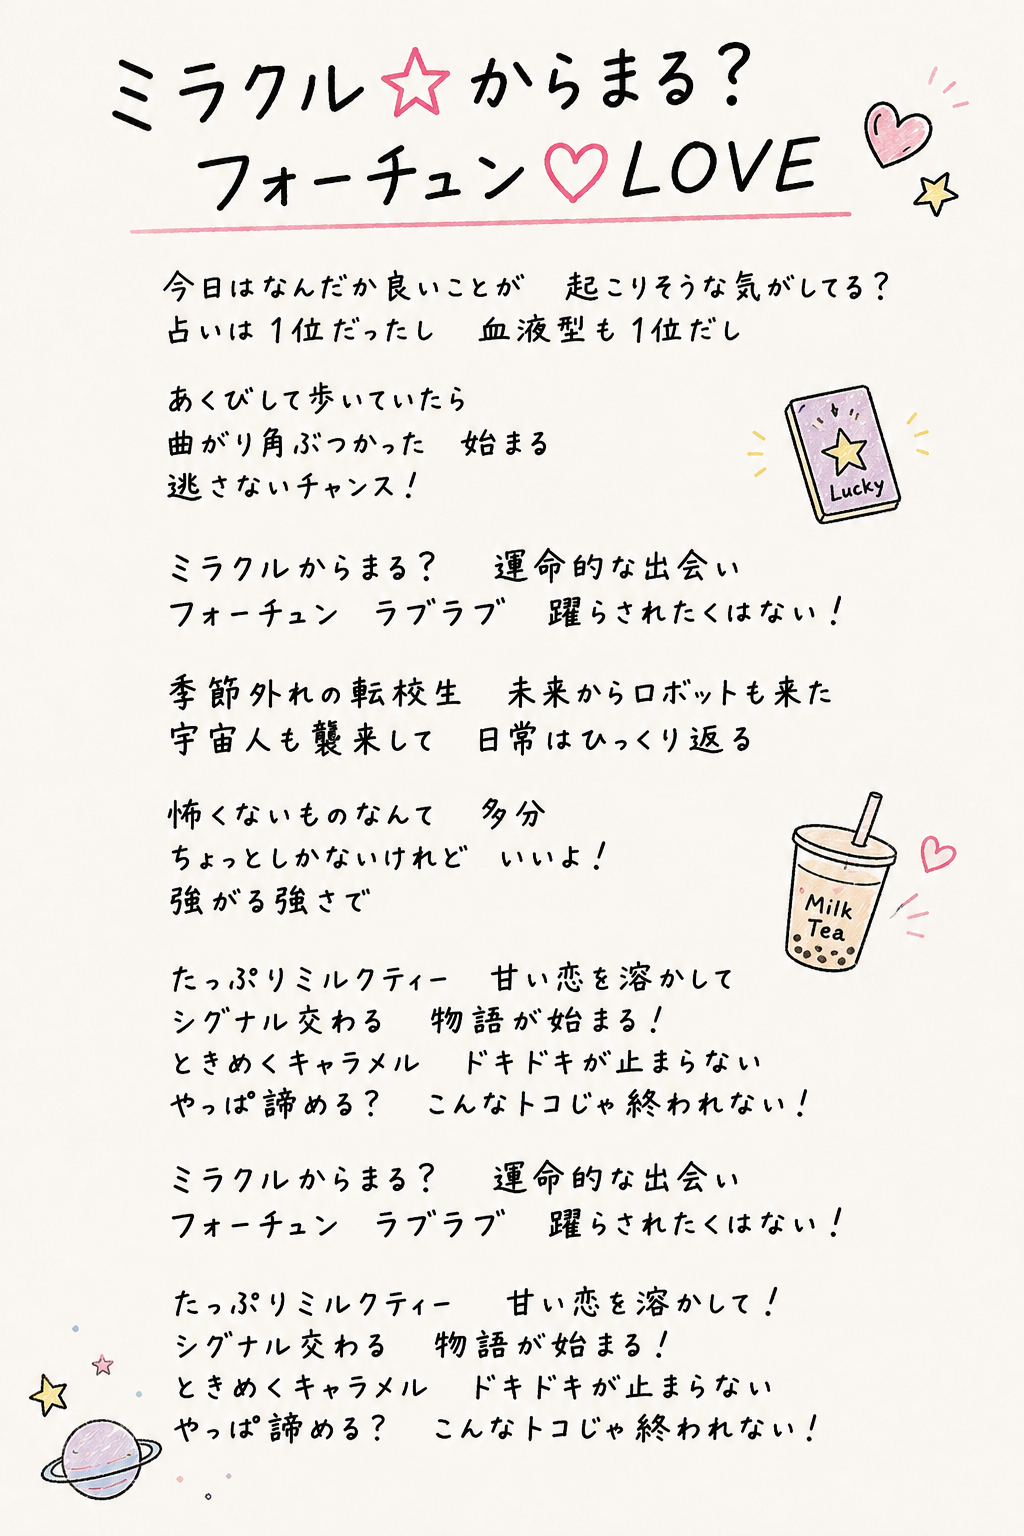 ミラクル☆からまる？
フォーチュン♡LOVE
今日はなんだか良いことが　起こりそうな気がしてる？
占いは1位だったし　血液型も1位だし
あくびして歩いていたら
曲がり角ぶつかった　始まる
逃さないチャンス！
Lucky
ミラクルからまる？　運命的な出会い
フォーチュン　ラブラブ　躍らされたくはない！
季節外れの転校生　未来からロボットも来た
宇宙人も襲来して　日常はひっくり返る
怖くないものなんて　多分
ちょっとしかないけれど　いいよ！
強がる強さで
Milk
Tea
たっぷりミルクティー　甘い恋を溶かして
シグナル交わる　物語が始まる！
ときめくキャラメル　ドキドキが止まらない
やっぱ諦める？　こんなトコじゃ終われない！
ミラクルからまる？　運命的な出会い
フォーチュン　ラブラブ　躍らされたくはない！
たっぷりミルクティー　甘い恋を溶かして！
シグナル交わる　物語が始まる！
ときめくキャラメル　ドキドキが止まらない
やっぱ諦める？　こんなトコじゃ終われない！